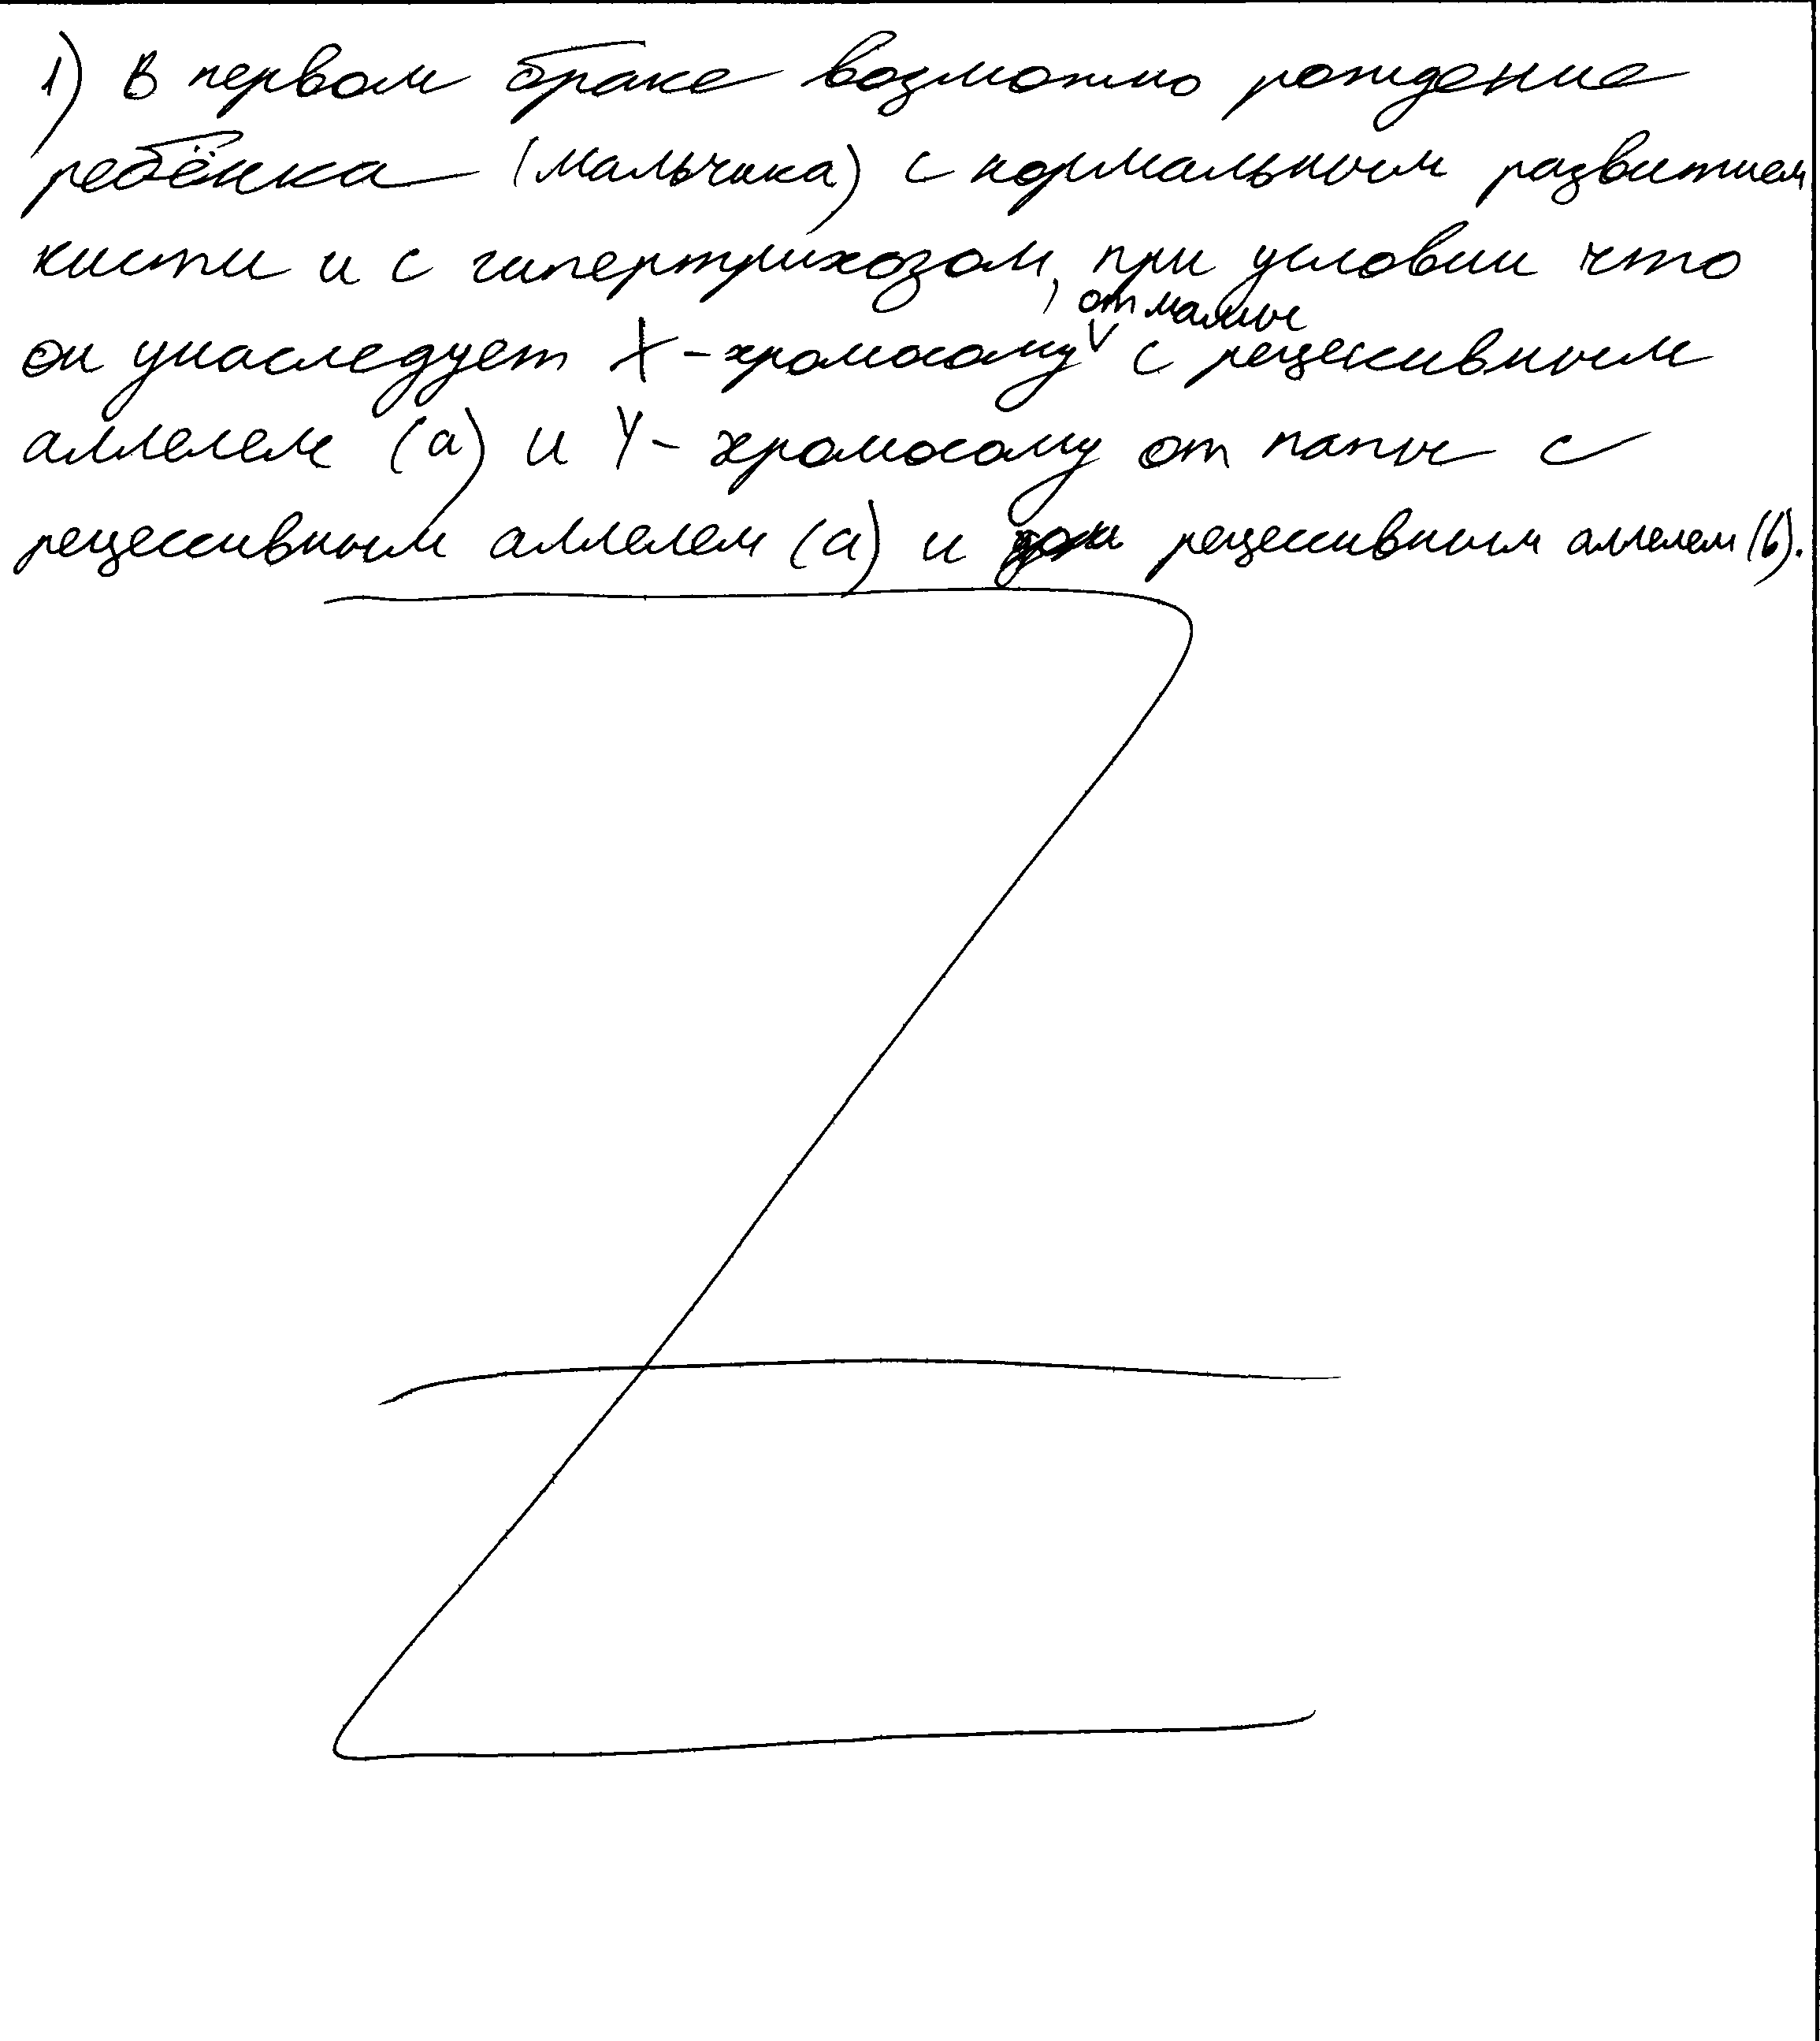 1) В первом браке возможно рождение
ребёнка (мальчика) с нормальным развитием
кисти и с гипертрихозом, при условии что
он унаследует X-хромосому от мамы с рецесивным
аллелем (а) и Y-хромосому от папы с
рецессивным аллелем (а) и рецессивным аллелем (b).